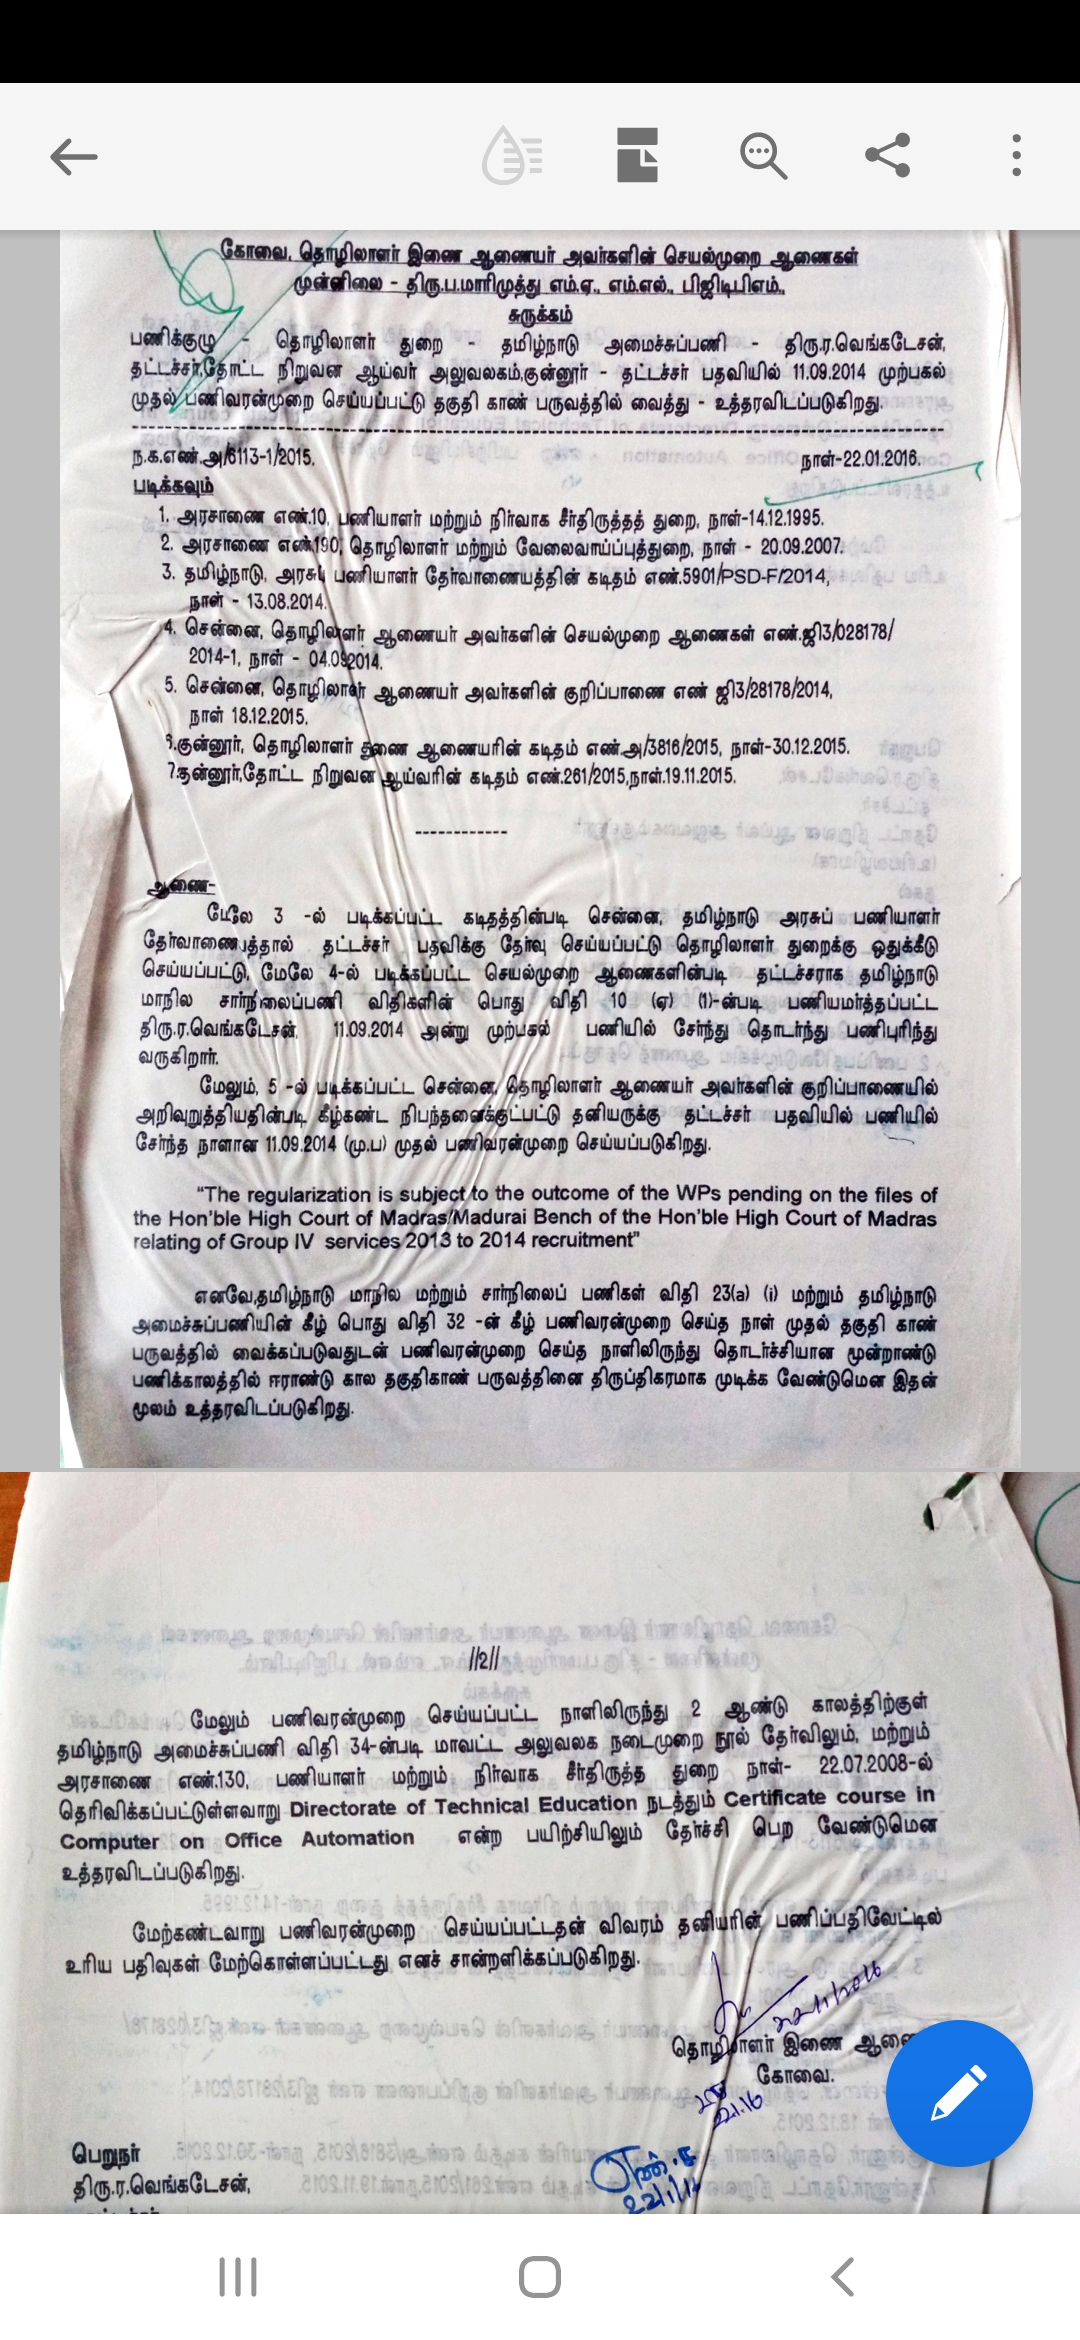 கோவை, தொழிலாளர் இணை ஆணையர் அவர்களின் செயல்முறை ஆணைகள்
முன்னிலை - திரு.ப.மாரிமுத்து எம்.ஏ., எம்.எல்., பிஜிடிபிஎம்.,
சுருக்கம்
பணிக்குழு - தொழிலாளர் துறை - தமிழ்நாடு அமைச்சுப்பணி - திரு.ர.வெங்கடேசன்,
தட்டச்சர்,தோட்ட நிறுவன ஆய்வர் அலுவலகம்,குன்னூர் - தட்டச்சர் பதவியில் 11.09.2014 முற்பகல்
முதல் பணிவரன்முறை செய்யப்பட்டு தகுதி காண் பருவத்தில் வைத்து - உத்தரவிடப்படுகிறது.
ந.க.எண்.அ/6113-1/2015. நாள்-22.01.2016.
படிக்கவும்
1. அரசாணை எண்.10, பணியாளர் மற்றும் நிர்வாக சீர்திருத்தத் துறை, நாள்-14.12.1995.
2. அரசாணை எண்.190, தொழிலாளர் மற்றும் வேலைவாய்ப்புத்துறை, நாள் - 20.09.2007.
3. தமிழ்நாடு, அரசுப் பணியாளர் தேர்வாணையத்தின் கடிதம் எண்.5901/PSD-F/2014,
நாள் - 13.08.2014.
4. சென்னை, தொழிலாளர் ஆணையர் அவர்களின் செயல்முறை ஆணைகள் எண்.ஜி3/028178/
2014-1, நாள் - 04.09.2014.
5. சென்னை, தொழிலாளர் ஆணையர் அவர்களின் குறிப்பாணை எண் ஜி3/28178/2014,
நாள் 18.12.2015.
6.குன்னூர், தொழிலாளர் துணை ஆணையரின் கடிதம் எண்.அ/3816/2015, நாள்-30.12.2015.
7.குன்னூர்,தோட்ட நிறுவன ஆய்வரின் கடிதம் எண்.261/2015,நாள்.19.11.2015.
------------
ஆணை-
மேலே 3 -ல் படிக்கப்பட்ட கடிதத்தின்படி சென்னை, தமிழ்நாடு அரசுப் பணியாளர்
தேர்வாணையத்தால் தட்டச்சர் பதவிக்கு தேர்வு செய்யப்பட்டு தொழிலாளர் துறைக்கு ஒதுக்கீடு
செய்யப்பட்டு, மேலே 4-ல் படிக்கப்பட்ட செயல்முறை ஆணைகளின்படி தட்டச்சராக தமிழ்நாடு
மாநில சார்நிலைப்பணி விதிகளின் பொது விதி 10 (ஏ) (1)-ன்படி பணியமர்த்தப்பட்ட
திரு.ர.வெங்கடேசன், 11.09.2014 அன்று முற்பகல் பணியில் சேர்ந்து தொடர்ந்து பணிபுரிந்து
வருகிறார்.
மேலும், 5 -ல் படிக்கப்பட்ட சென்னை, தொழிலாளர் ஆணையர் அவர்களின் குறிப்பாணையில்
அறிவுறுத்தியதின்படி கீழ்கண்ட நிபந்தனைக்குட்பட்டு தனியருக்கு தட்டச்சர் பதவியில் பணியில்
சேர்ந்த நாளான 11.09.2014 (மு.ப) முதல் பணிவரன்முறை செய்யப்படுகிறது.
“The regularization is subject to the outcome of the WPs pending on the files of
the Hon'ble High Court of Madras/Madurai Bench of the Hon'ble High Court of Madras
relating of Group IV services 2013 to 2014 recruitment”
எனவே,தமிழ்நாடு மாநில மற்றும் சார்நிலைப் பணிகள் விதி 23(a) (i) மற்றும் தமிழ்நாடு
அமைச்சுப்பணியின் கீழ் பொது விதி 32 -ன் கீழ் பணிவரன்முறை செய்த நாள் முதல் தகுதி காண்
பருவத்தில் வைக்கப்படுவதுடன் பணிவரன்முறை செய்த நாளிலிருந்து தொடர்ச்சியான மூன்றாண்டு
பணிக்காலத்தில் ஈராண்டு கால தகுதிகாண் பருவத்தினை திருப்திகரமாக முடிக்க வேண்டுமென இதன்
மூலம் உத்தரவிடப்படுகிறது.
//2//
மேலும் பணிவரன்முறை செய்யப்பட்ட நாளிலிருந்து 2 ஆண்டு காலத்திற்குள்
தமிழ்நாடு அமைச்சுப்பணி விதி 34-ன்படி மாவட்ட அலுவலக நடைமுறை நூல் தேர்விலும், மற்றும்
அரசாணை எண்.130, பணியாளர் மற்றும் நிர்வாக சீர்திருத்த துறை நாள்- 22.07.2008-ல்
தெரிவிக்கப்பட்டுள்ளவாறு Directorate of Technical Education நடத்தும் Certificate course in
Computer on Office Automation என்ற பயிற்சியிலும் தேர்ச்சி பெற வேண்டுமென
உத்தரவிடப்படுகிறது.
மேற்கண்டவாறு பணிவரன்முறை செய்யப்பட்டதன் விவரம் தனியரின் பணிப்பதிவேட்டில்
உரிய பதிவுகள் மேற்கொள்ளப்பட்டது எனச் சான்றளிக்கப்படுகிறது.
தொழிலாளர் இணை
கோவை.
22.1.16
பெறுநர்
திரு.ர.வெங்கடேசன்,
22/1/16